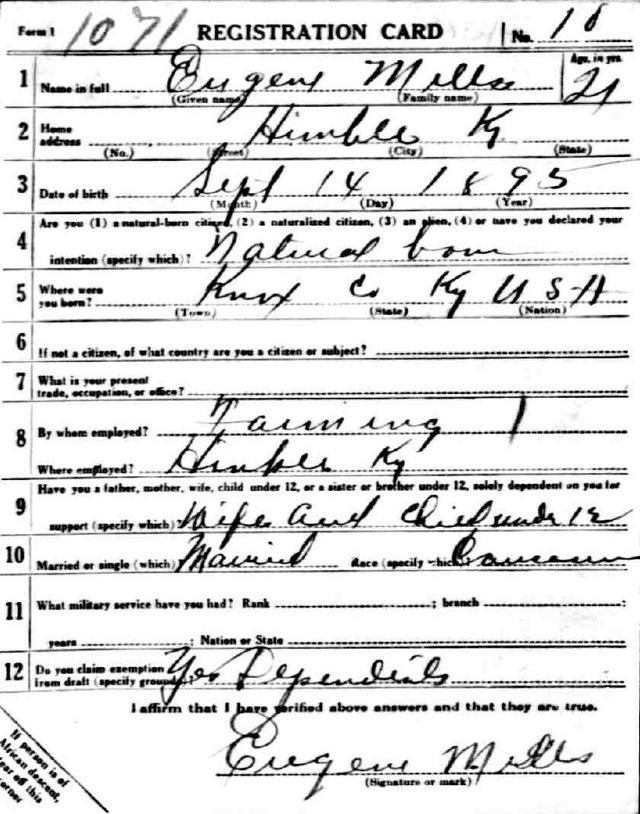 Form 1 1071 REGISTRATION CARD No. 10
1 Name in full Eugene Mills Age, in yrs. 21
(Given name) (Family name)
2 Home address Himble Ky
(No.) (Street) (City) (State)
3 Date of birth Sept 14 1895
(Month) (Day) (Year)
4 Are you (1) a natural-born citizen, (2) a naturalized citizen, (3) an alien, (4) or have you declared your
intention (specify which)? Natural born
5 Where were you born? Knox Co Ky U S A
(Town) (State) (Nation)
6 If not a citizen, of what country are you a citizen or subject?
7 What is your present trade, occupation, or office?
8 By whom employed? Farming
Where employed? Himble Ky
9 Have you a father, mother, wife, child under 12, or a sister or brother under 12, solely dependent on you for
support (specify which)? Wife and Child under 12
10 Married or single (which)? Married Race (specify which)?
11 What military service have you had? Rank ; branch ;
years ; Nation or State
12 Do you claim exemption from draft (specify grounds)? Yes Dependents
I affirm that I have verified above answers and that they are true.
Eugene Mills
(Signature or mark)
If person is of
African descent,
tear off this
corner